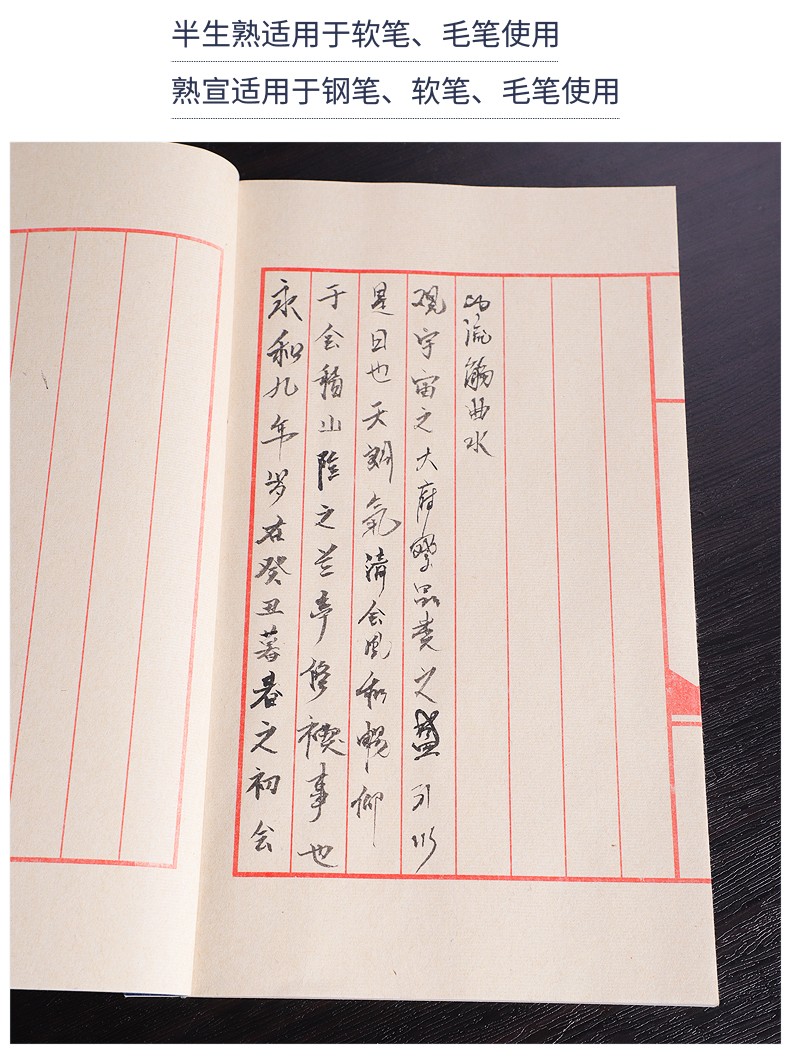 半生熟适用于软笔、毛笔使用
熟宣适用于钢笔、软笔、毛笔使用
永和九年岁在癸丑暮春之初会
于会稽山陰之兰亭修禊事也
是日也天朗氣清会风和畅仰
观宇宙之大府察品类之盛引以
为流觞曲水